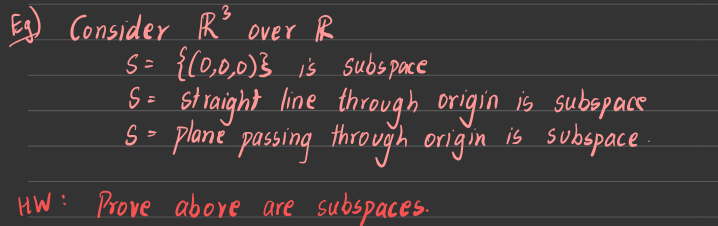 Eg) Consider ℝ³ over ℝ
S = {(0,0,0)} is subspace
S = straight line through origin is subspace
S = plane passing through origin is subspace.
HW: Prove above are subspaces.